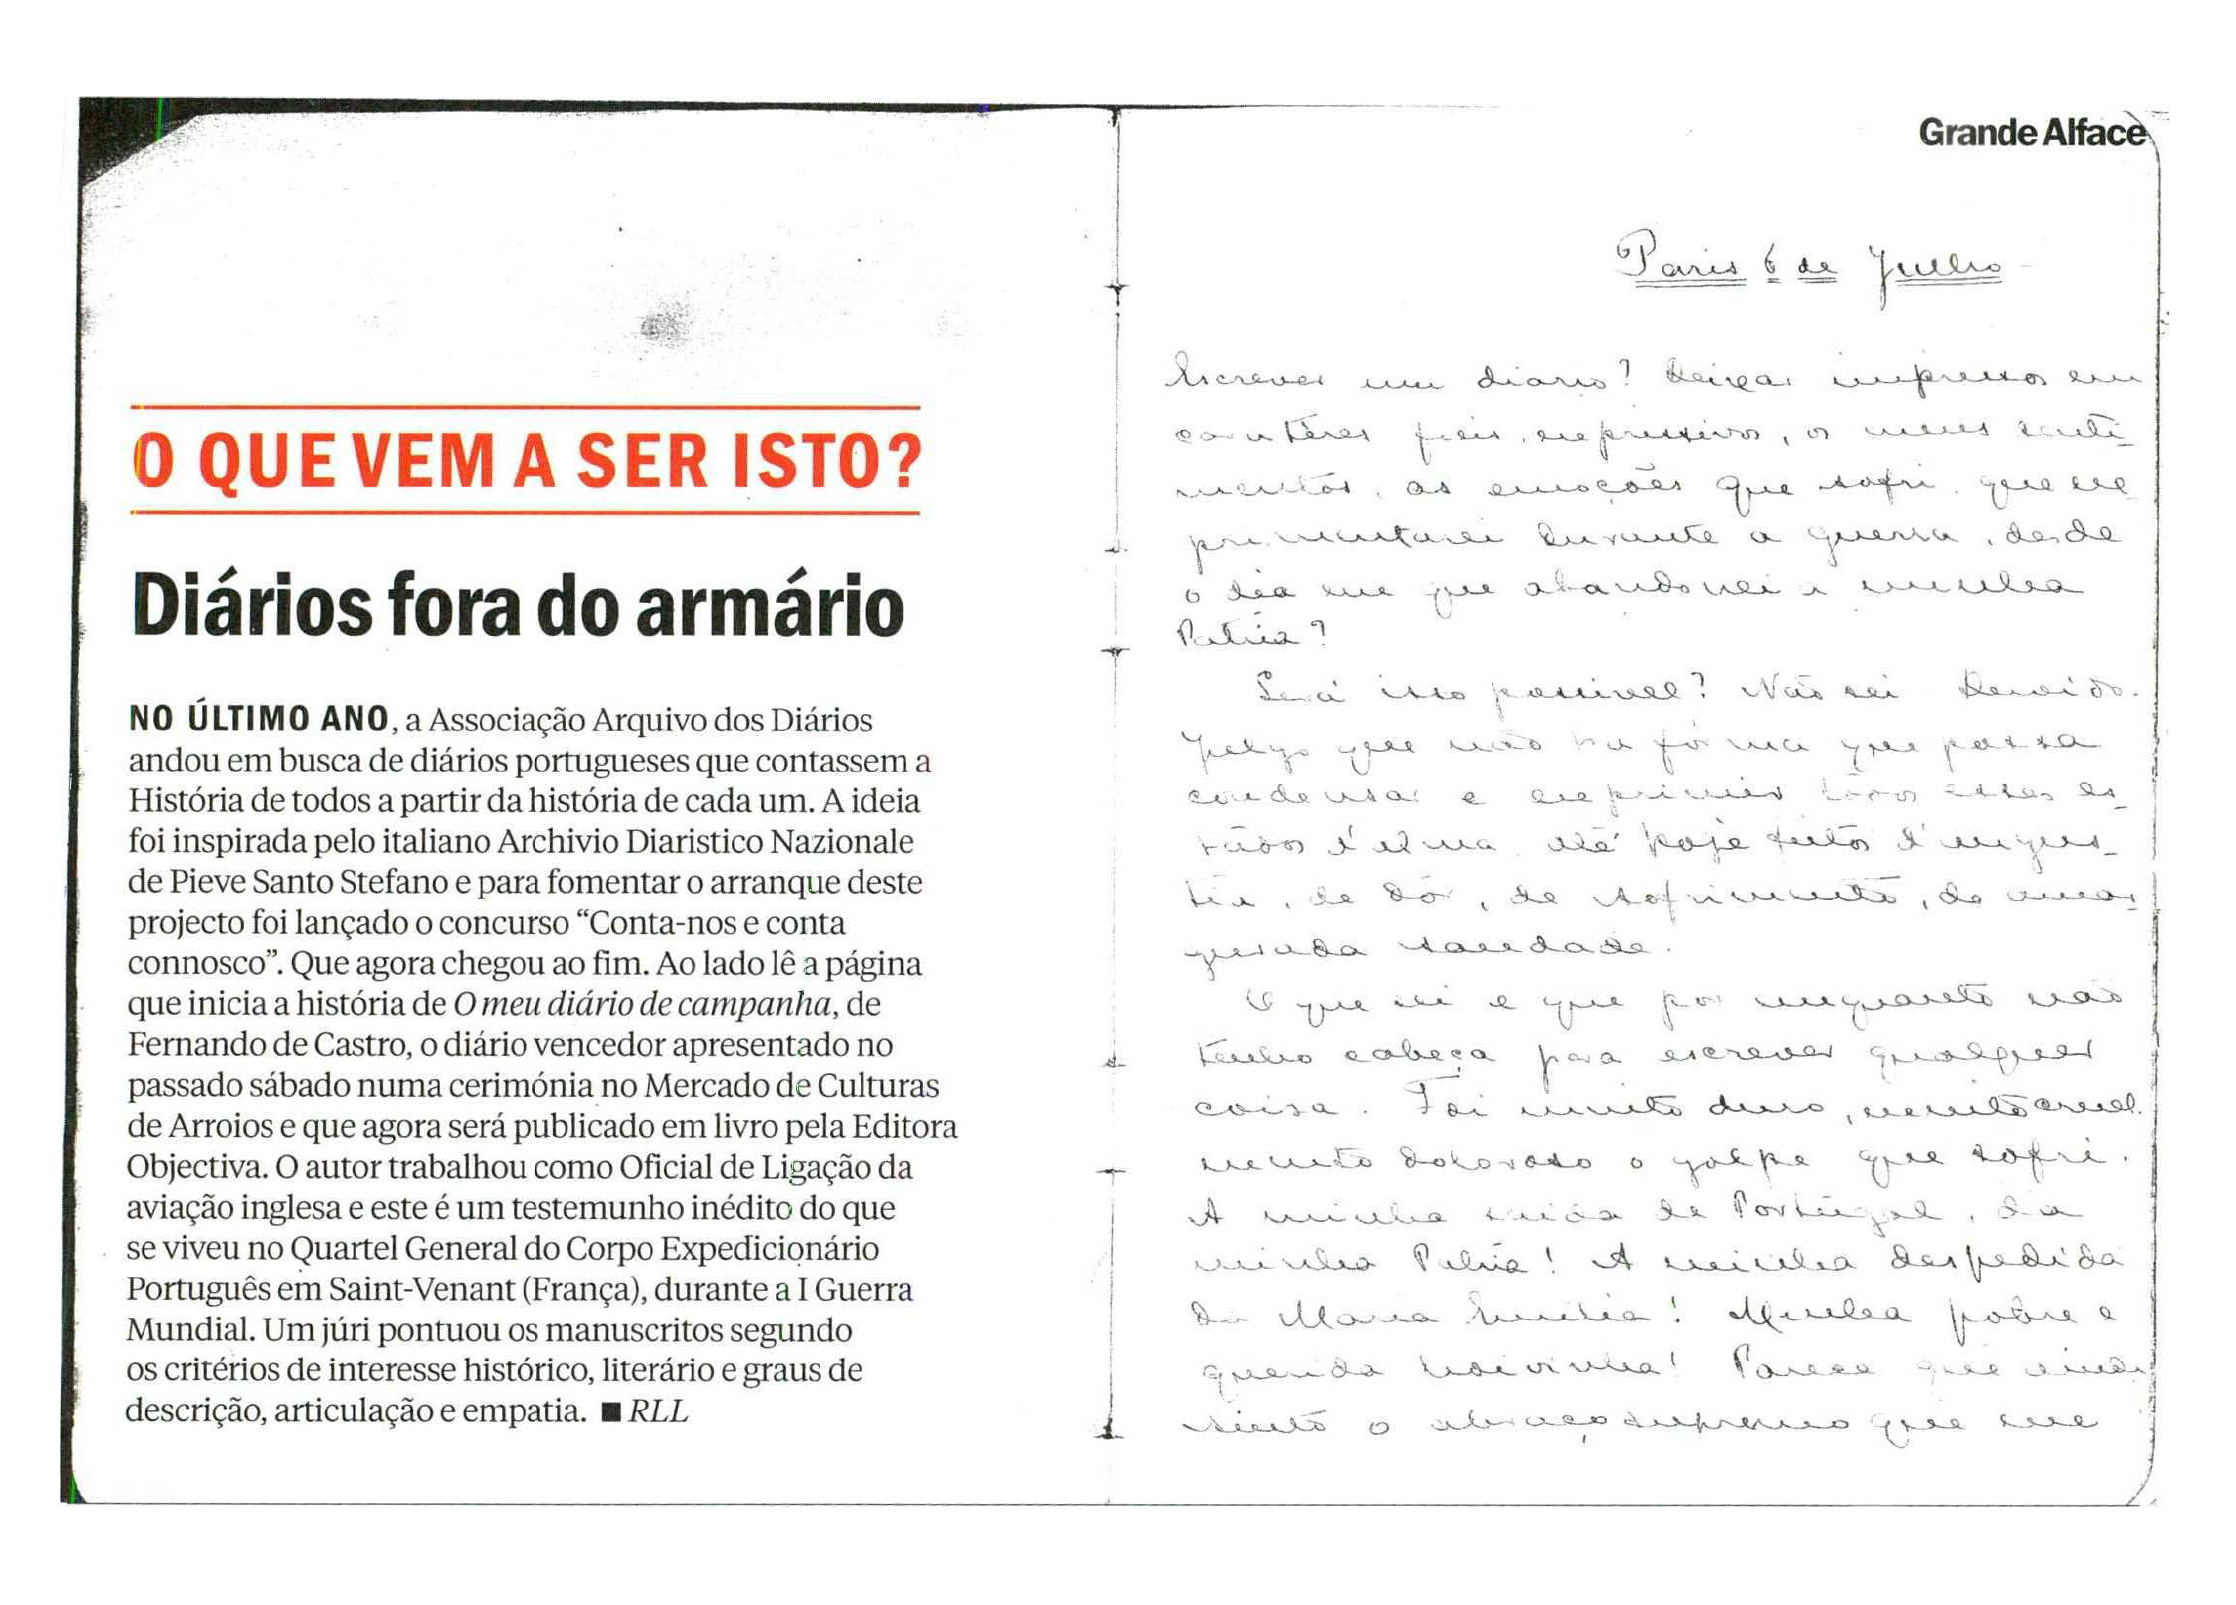 Grande Alface
O QUE VEM A SER ISTO?
Diários fora do armário
NO ÚLTIMO ANO, a Associação Arquivo dos Diários
andou em busca de diários portugueses que contassem a
História de todos a partir da história de cada um. A ideia
foi inspirada pelo italiano Archivio Diaristico Nazionale
de Pieve Santo Stefano e para fomentar o arranque deste
projecto foi lançado o concurso “Conta-nos e conta
connosco”. Que agora chegou ao fim. Ao lado lê a página
que inicia a história de O meu diário de campanha, de
Fernando de Castro, o diário vencedor apresentado no
passado sábado numa cerimónia no Mercado de Culturas
de Arroios e que agora será publicado em livro pela Editora
Objectiva. O autor trabalhou como Oficial de Ligação da
aviação inglesa e este é um testemunho inédito do que
se viveu no Quartel General do Corpo Expedicionário
Português em Saint-Venant (França), durante a I Guerra
Mundial. Um júri pontuou os manuscritos segundo
os critérios de interesse histórico, literário e graus de
descrição, articulação e empatia. ■ RLL
Paris 6 de Julho
Escrever um diario? Deixar impressos em
caractéres fieis, expressivos, os meus senti-
mentos, as emoções que sofri, que ex
primentarei durante a guerra, desde
o dia em que abandonei a minha
Patria?
Será isso possivel? Não sei. Duvido.
Julgo que não ha fórma que possa
condensar e exprimir todos esses es-
tados d'alma, até hoje feitos d'angus-
tia, de dôr, de sofrimento, de amar-
gurada saudade.
O que sei é que por emquanto não
tenho cabeça para escrever qualquer
coisa. Foi muito duro, muito cruel,
muito doloroso o golpe que sofri.
A minha saida de Portugal, da
minha Patria! A minha despedida
da Maria Emilia! Minha pobre e
querida noivinha! Parece que ainda
sinto o abraço supremo que me